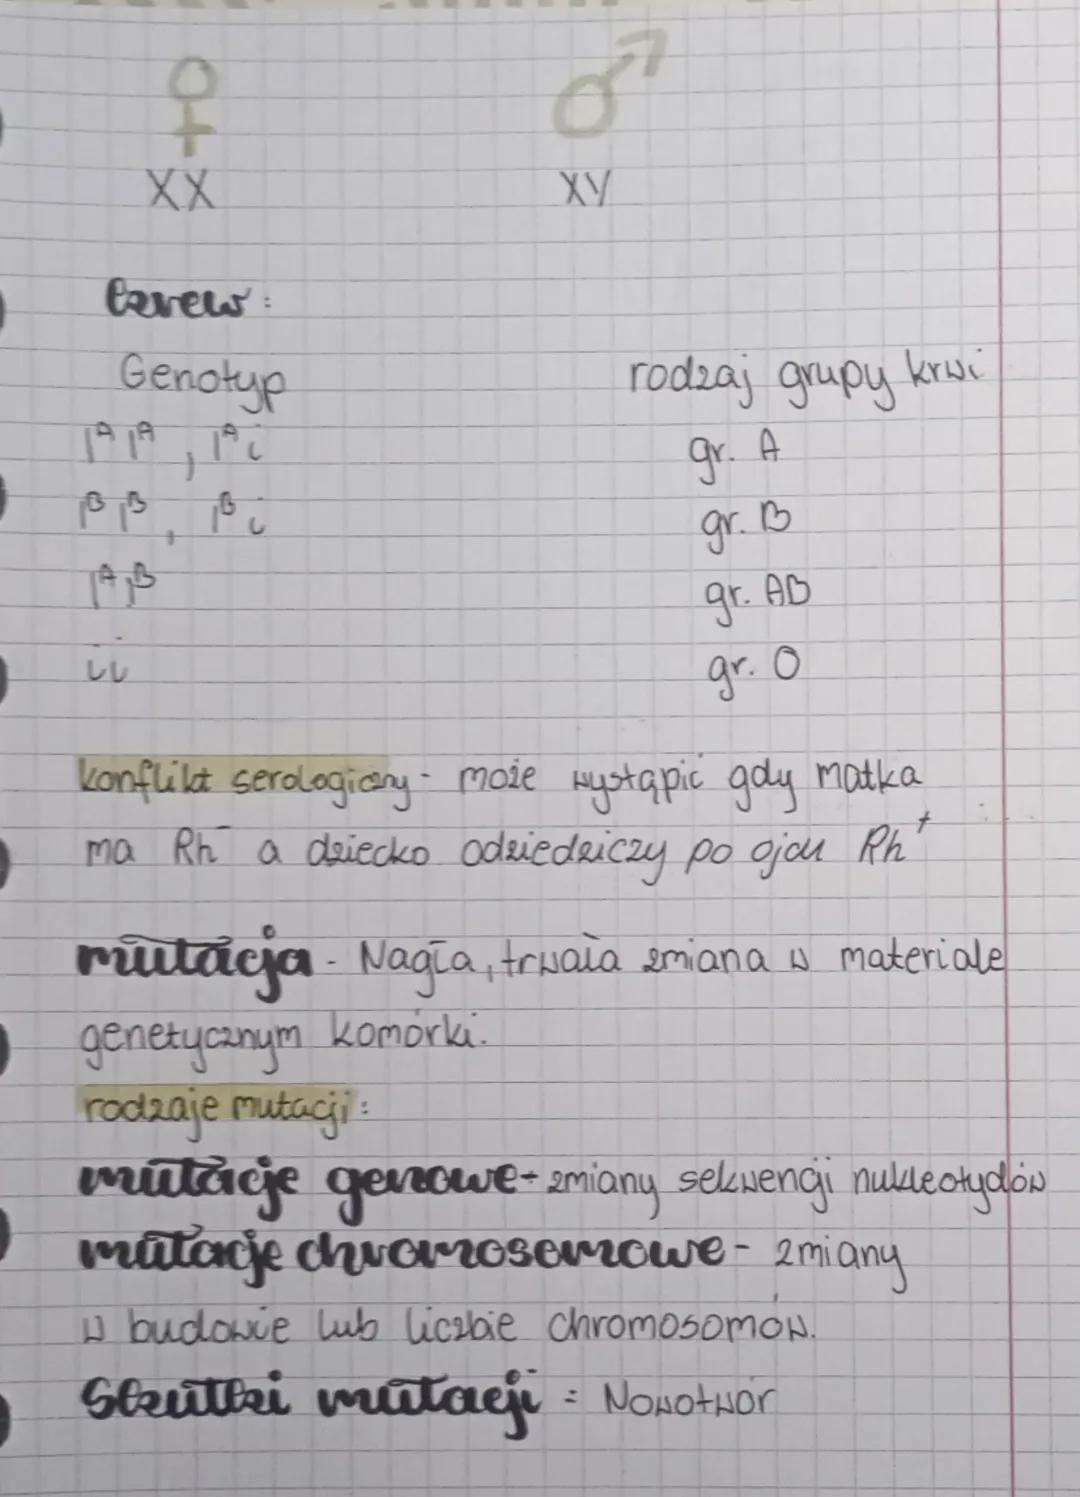 ♀ ♂
XX XY
krew:
Genotyp rodzaj grupy krwi
I^A I^A, I^A i gr. A
I^B I^B, I^B i gr. B
I^A I^B gr. AB
ii gr. O
konflikt serologiczny - może wystąpić gdy matka
ma Rh⁻ a dziecko odziedziczy po ojcu Rh⁺
mutacja - Nagła, trwała zmiana w materiale
genetycznym komórki.
rodzaje mutacji:
mutacje genowe - zmiany sekwencji nukleotydów
mutacje chromosomowe - zmiany
w budowie lub liczbie chromosomów.
Skutki mutacji: Nowotwór